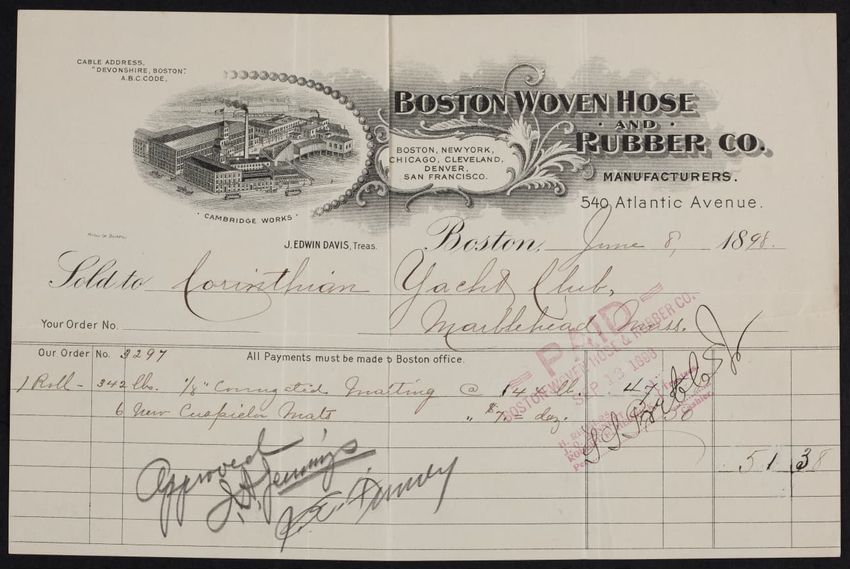 CABLE ADDRESS,
"DEVONSHIRE, BOSTON".
A.B.C. CODE.
BOSTON WOVEN HOSE
· AND ·
RUBBER CO.
BOSTON, NEW YORK,
CHICAGO, CLEVELAND,
DENVER,
SAN FRANCISCO.
MANUFACTURERS.
540 Atlantic Avenue.
· CAMBRIDGE WORKS ·
J. EDWIN DAVIS, Treas.
Boston, June 8, 1898.
Sold to Corinthian Yacht Club,
Your Order No. Marblehead, Mass.
Our Order No. 3297 All Payments must be made to Boston office.
1 Roll - 342 lbs. 1/8" Corrugated Matting @ 14 ¢ lb.
6 New Cuspidor Mats " $7 doz.
51 38
PAID
BOSTON WOVEN HOSE & RUBBER CO.
SEP 13 1898
Approved